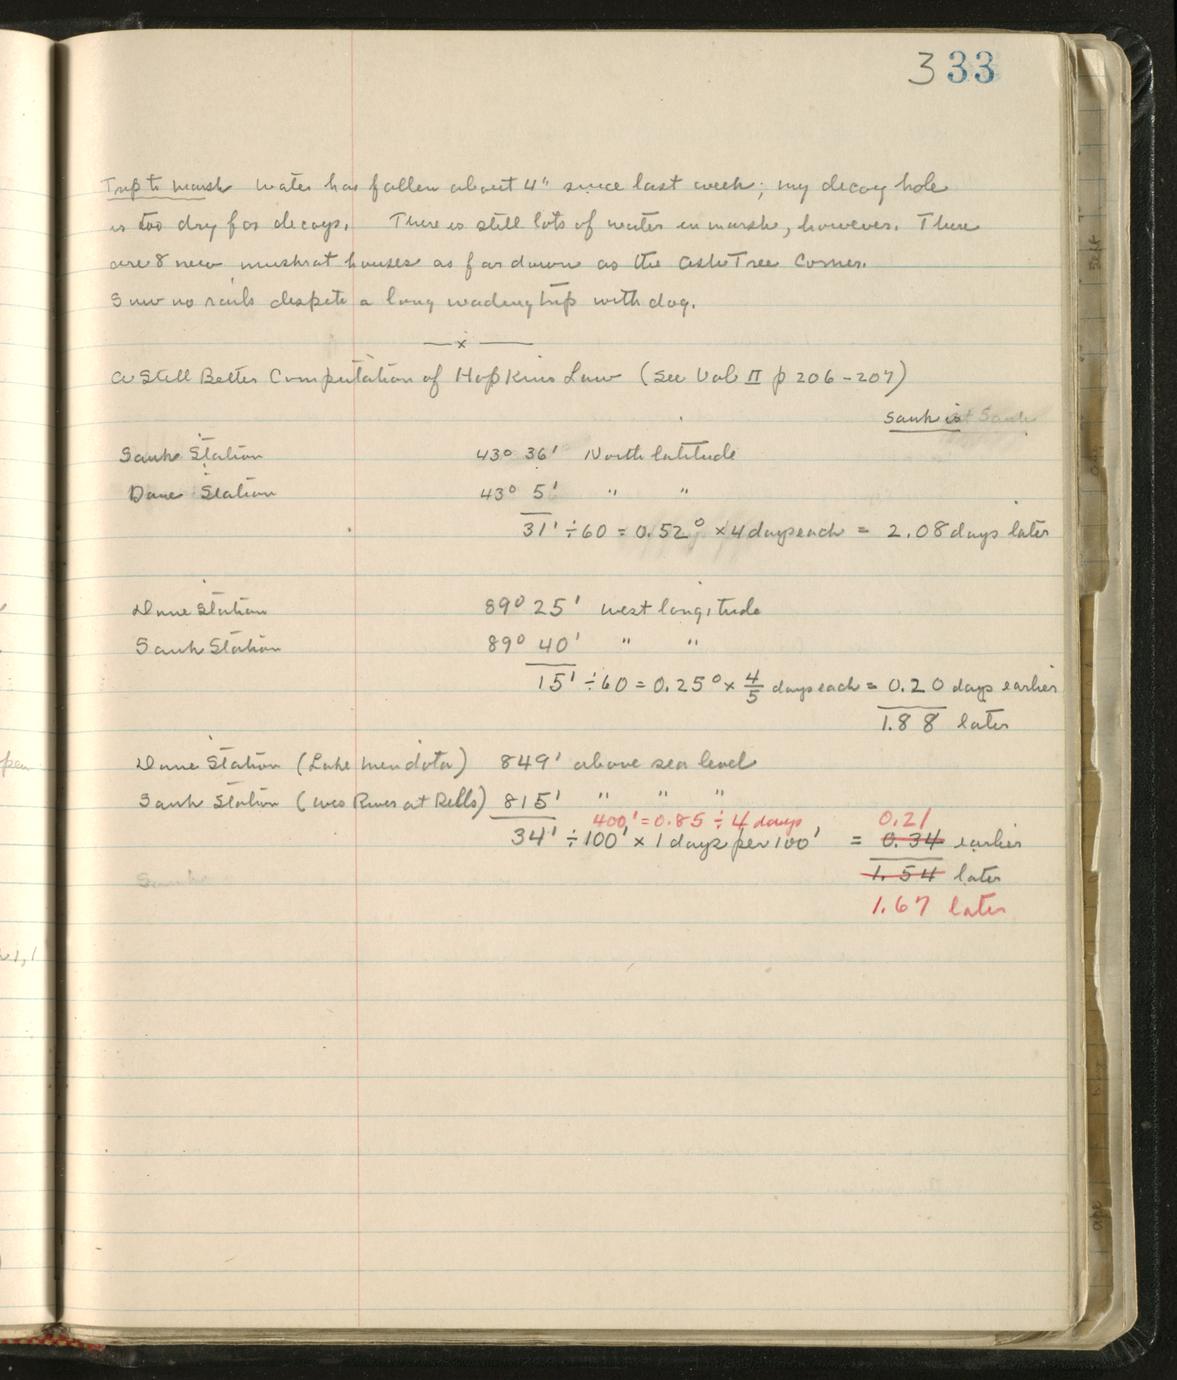 333
Trip to marsh Water has fallen about 4" since last week; my decoy hole
is too dry for decoys. There is still lots of water in marsh, however. There
are 8 new muskrat houses as far down as the Ash Tree Corner.
Saw no rails despite a long wading trip with dog.
— x —
A Still Better Computation of Hopkins Law (See Vol II p 206-207)
Sauk is
Sauk Station 43° 36' North latitude
Dane Station 43° 5' " "
31' ÷ 60 = 0.52° × 4 days each = 2.08 days later
Dane Station 89° 25' west longitude
Sauk Station 89° 40' " "
15' ÷ 60 = 0.25° × 4/5 days each = 0.20 days earlier
1.88 later
Dane Station (Lake Mendota) 849' above sea level
Sauk Station (Wis River at Dells) 815' " " "
400' = 0.85 ÷ 4 days 0.21
34' ÷ 100' × 1 days per 100' = 0.34 earlier
1.54 later
1.67 later